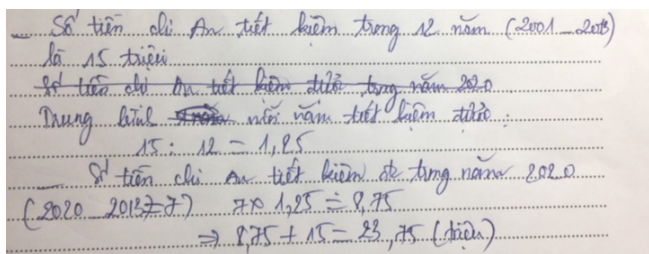 _ Số tiền chị An tiết kiệm trong 12 năm (2001 _ 2013)
là 15 triệu
Số tiền chị An tiết kiệm được trong năm 2020
Trung bình mỗi năm tiết kiệm được :
15 : 12 = 1,25
_ Số tiền chị An tiết kiệm đc trong năm 2020
(2020 _ 2013 = 7) 7 x 1,25 = 8,75
⇒ 8,75 + 15 = 23,75 (triệu)